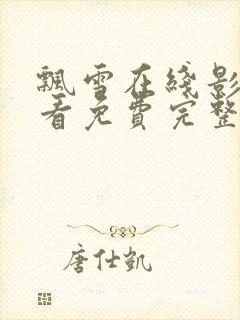 飘雪在线影
看免费完整
唐仕凯